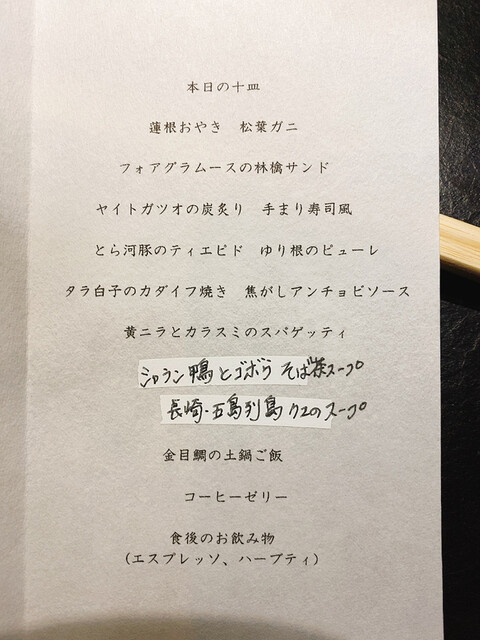 本日の十皿
蓮根おやき　松葉ガニ
フォアグラムースの林檎サンド
ヤイトガツオの炭炙り　手まり寿司風
とら河豚のティエピド　ゆり根のピューレ
タラ白子のカダイフ焼き　焦がしアンチョビソース
黄ニラとカラスミのスパゲッティ
シャラン鴨とゴボウ そば茶スープ
長崎・五島列島 クエのスープ
金目鯛の土鍋ご飯
コーヒーゼリー
食後のお飲み物
（エスプレッソ、ハーブティ）